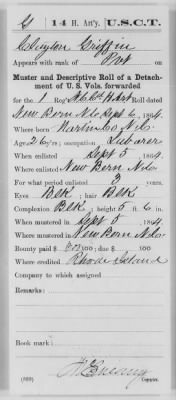 G | 14 H. Art'y. | U.S.C.T.
Clayton Griffin
Appears with rank of Pvt on
Muster and Descriptive Roll of a Detach-
ment of U. S. Vols. forwarded
for the 1 Reg't N.C. C. H. Art Roll dated
New Bern N.C. Sept 6, 1864.
Where born Martin Co N.C.
Age 26 y'rs; occupation Laborer
When enlisted Sept 5, 1864.
Where enlisted New Bern N.C.
For what period enlisted 3 years.
Eyes Blk; hair Blk
Complexion Blk; height 5 ft. 6 in.
When mustered in Sept 5, 1864.
Where mustered in New Bern N.C.
Bounty paid $ 100; due $ 100
Where credited Rhode Island
Company to which assigned
Remarks:
Book mark:
(339) Copyist.